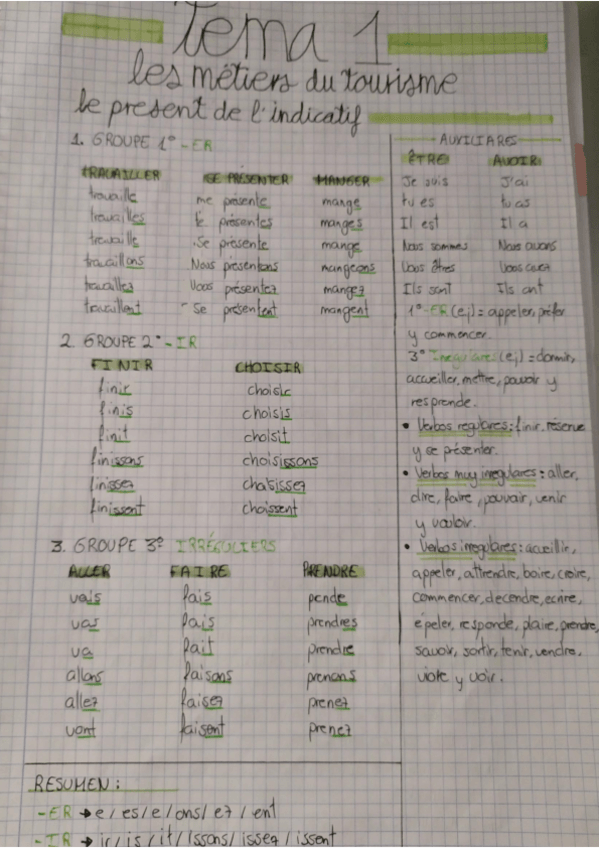 Tema 1
les métiers du tourisme
le present de l'indicatif
1. GROUPE 1º -ER
TRAVAILLER SE PRÉSENTER MANGER
travaille me présente mange
travailles te présentes manges
travaille Se présente mange
travaillons Nous présentons mangeons
travaillez Vous présentez mangez
travaillent Se présentent mangent
2 GROUPE 2º -IR
FINIR CHOISIR
finir choisic
finis choisis
finit choisit
finissons choisissons
finissez choisissez
finissent choissent
3. GROUPE 3º IRRÉGULIERS
ALLER FAIRE PRENDRE
vais fais pende
vas fais prendres
va fait prendre
allons faisons prenons
allez faisez prenez
vont faisent prenez
RESUMEN:
-ER → e / es / e / ons / ez / ent
-IR → ir / is / it / issons / issez / issent
AUXILIARES
ÊTRE AVOIR
Je suis J'ai
tu es tu as
Il est Il a
Nous sommes Nous avons
Vous êtes Vous avez
Ils sont Ils ont
1º -ER (ej) = appeler, préfer
y commencer.
3º Irregulares (ej) = dormir,
accueiller, mettre, pouvoir y
resprende.
• Verbos regulares: finir, réserve
y se présenter.
• Verbos muy irregulares: aller,
dire, faire, pouvoir, venir
y vouloir.
• Verbos irregulares: acueillir,
appeler, attrendre, boire, croire,
commencer, decendre, ecrire,
épeler, responde, plaire, prendre,
savoir, sortir, tenir, vendre,
viote y voir.